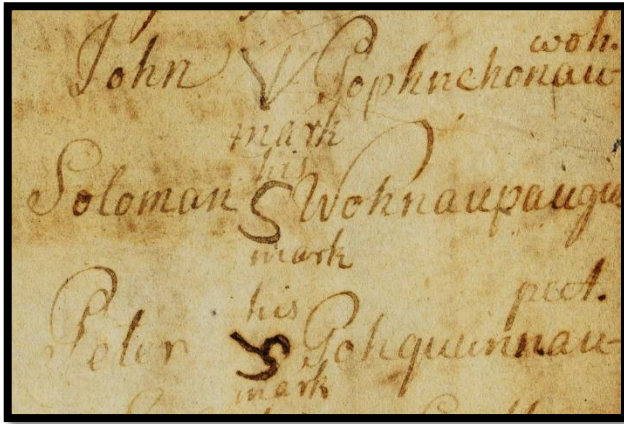 woh.
John V Pophnehonau-
mark
his
Soloman S Wohnaupaugus
mark
his peet.
Peter S Pohquunnau-
mark